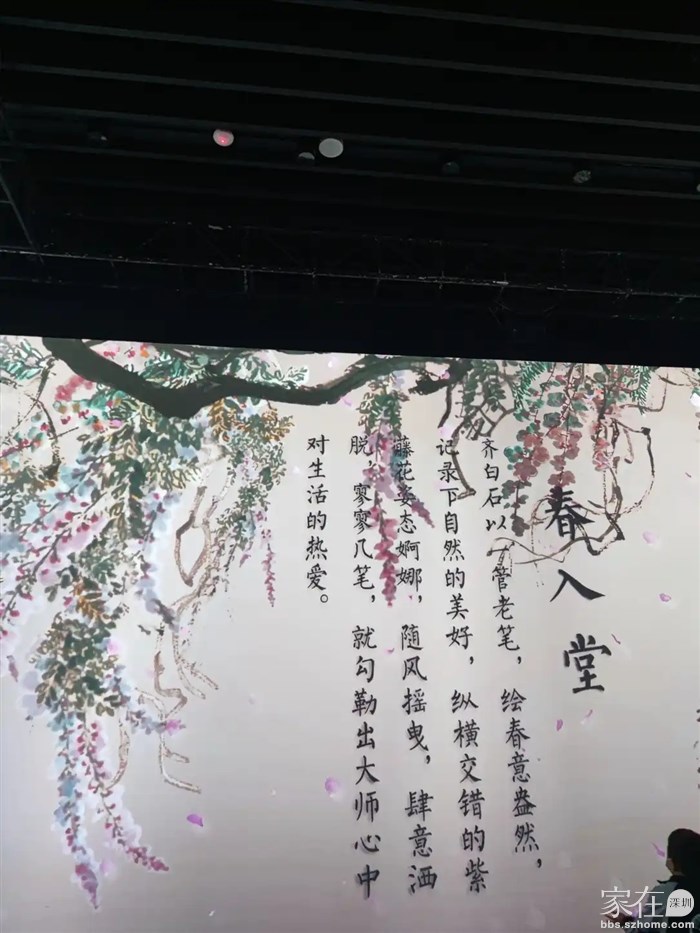 春入堂
齐白石以一管老笔，绘春意盎然，
记录下自然的美好，纵横交错的紫
藤花姿态婀娜，随风摇曳，肆意洒
脱，寥寥几笔，就勾勒出大师心中
对生活的热爱。
家在深圳
bbs.szhome.com